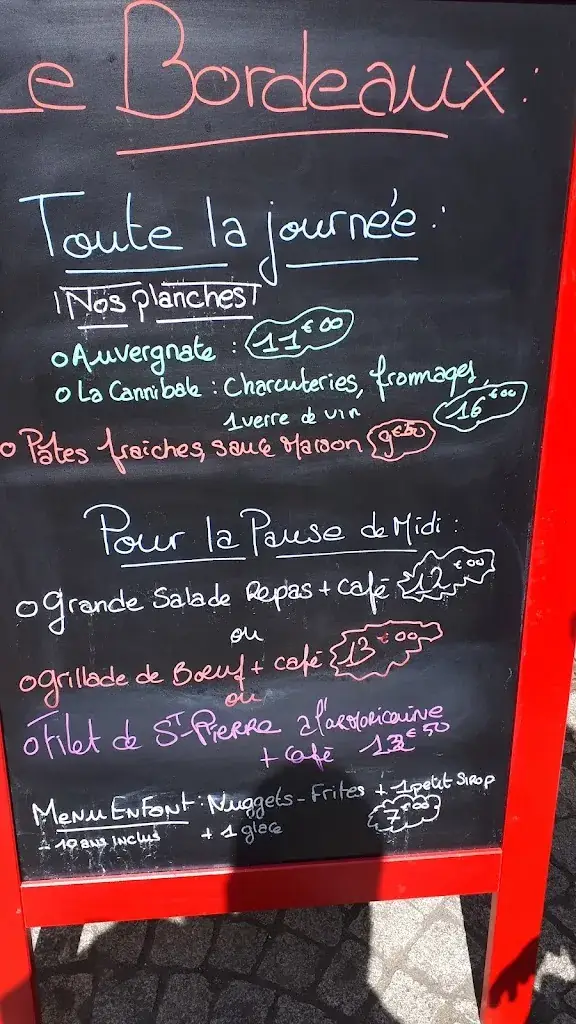 Le Bordeaux :
Toute la journée :
Nos planches
o Auvergnate : 11€00
o La Cannibale : Charcuteries, frommages,
1 verre de vin 16€00
o Pâtes fraîches, sauce Maison 9€50
Pour la Pause de Midi :
o Grande Salade Repas + café 12€00
ou
o Grillade de Boeuf + café 13€00
ou
o Filet de ST-PIERRE à l'armoricaine
+ café €50
MENU ENFANT : Nuggets - Frites + 1 petit Sirop
- 10 ans inclus + 1 glace 7€00